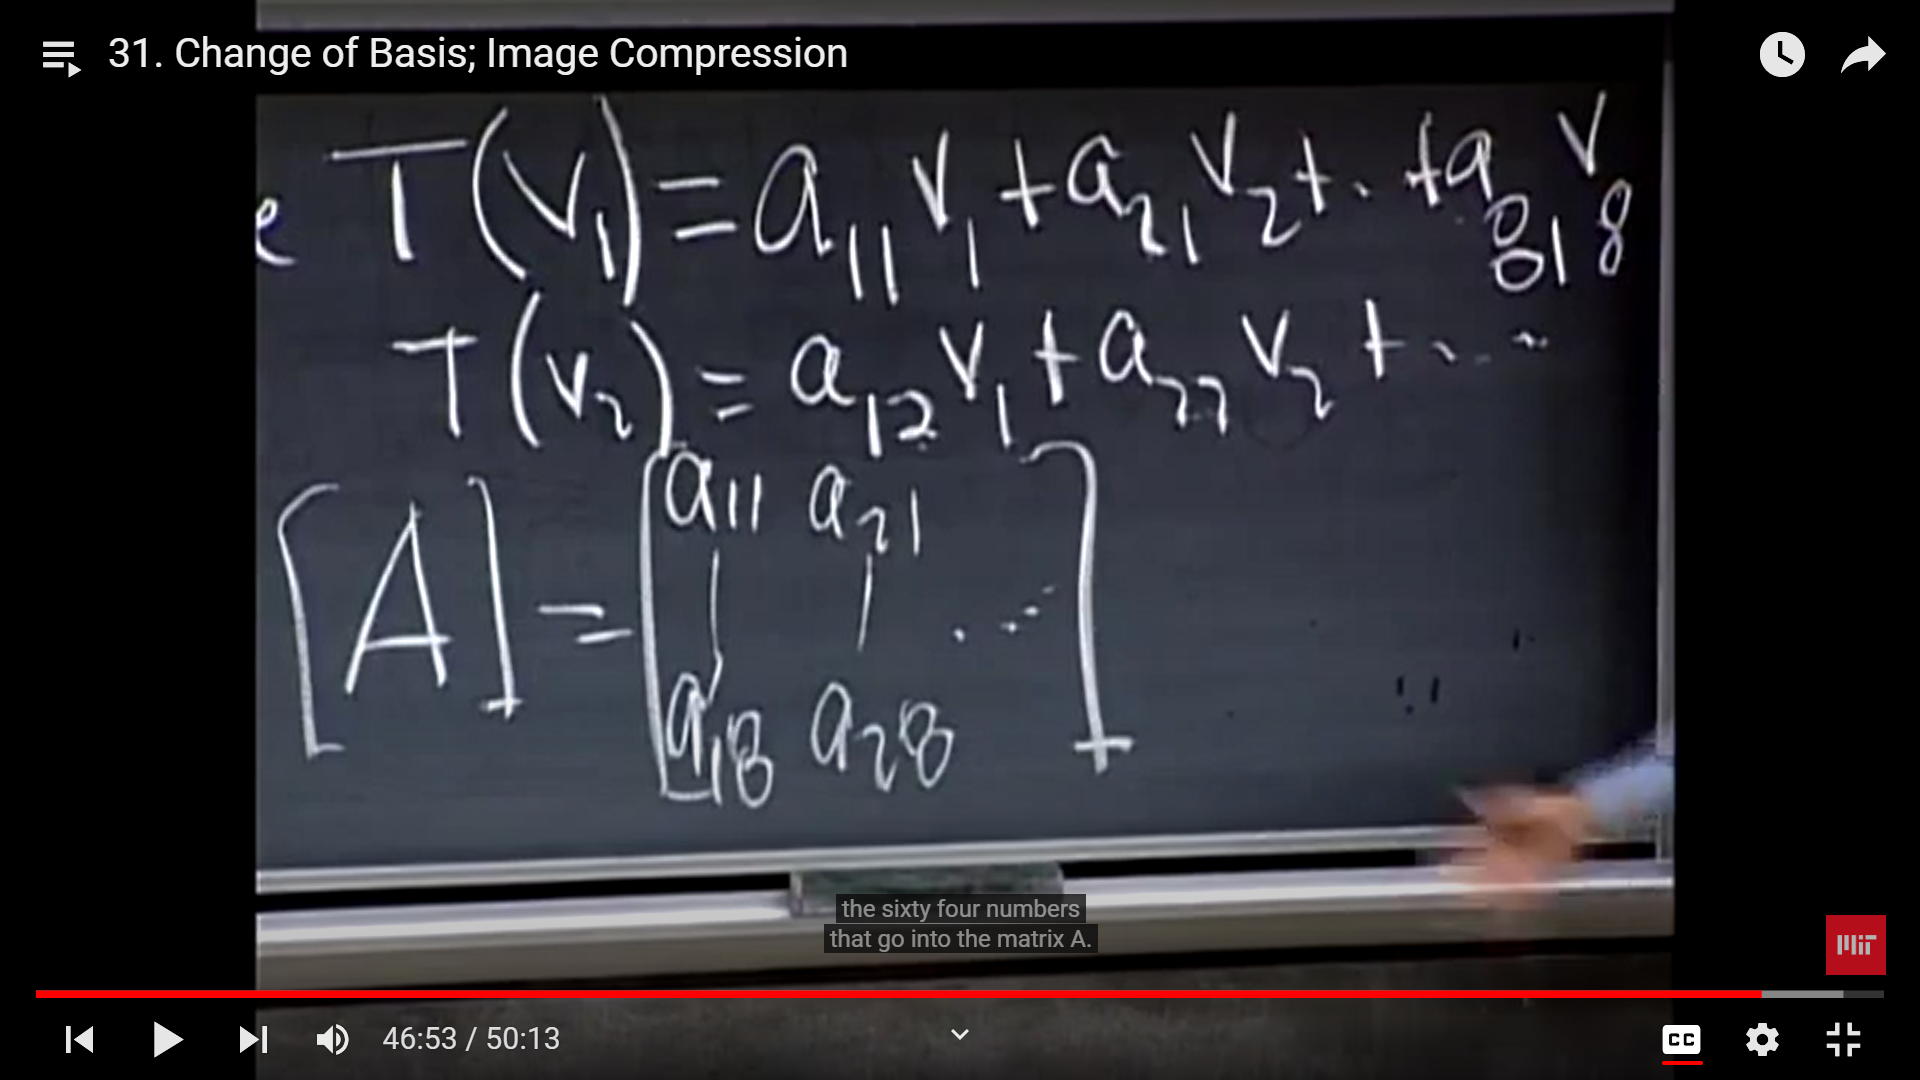 31. Change of Basis; Image Compression
e T(v₁) = a₁₁ v₁ + a₂₁ v₂ + ·· + a₈₁ v₈
T(v₂) = a₁₂ v₁ + a₂₂ v₂ + ···
[A] = [a₁₁ a₂₁
···
a₁₈ a₂₈]
the sixty four numbers
that go into the matrix A.
MIT
46:53 / 50:13
CC